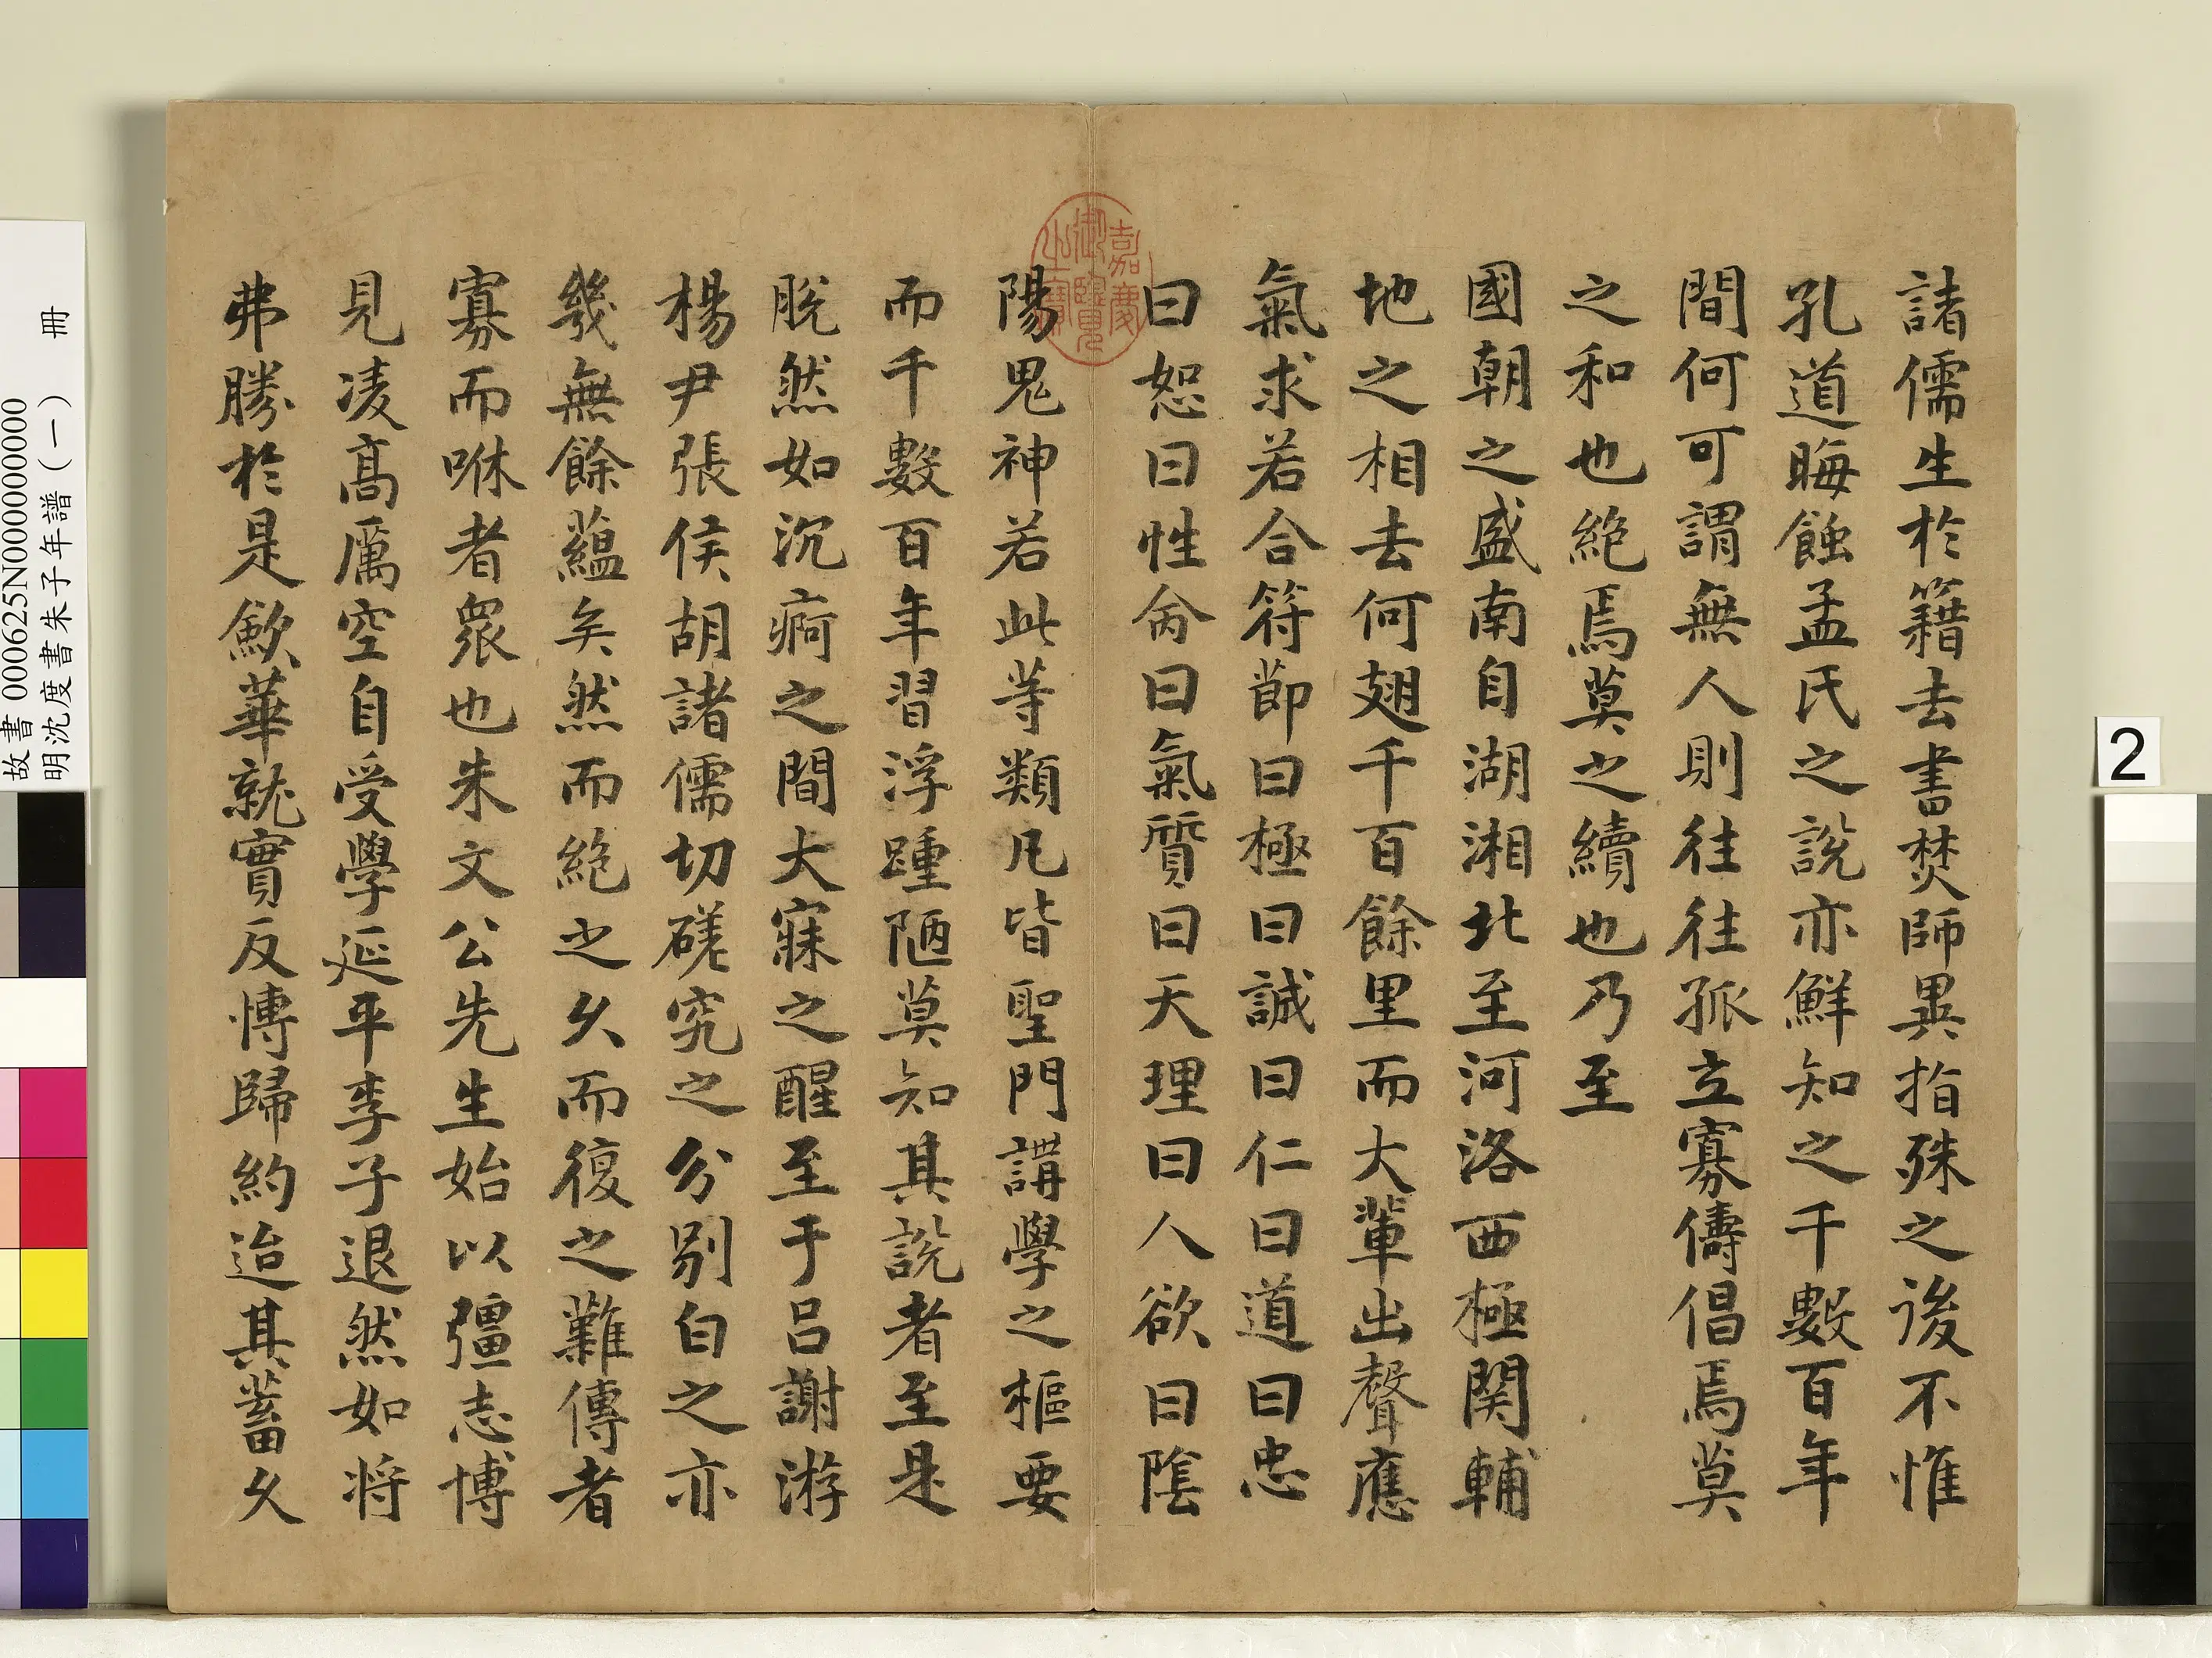 諸儒生於籍去書焚師異指殊之後不惟
孔道晦蝕孟氏之說亦鮮知之千數百年
間何可謂無人則往往孤立寡儔倡焉莫
之和也絶焉莫之續也乃至
國朝之盛南自湖湘北至河洛西極関輔
地之相去何翅千百餘里而大輩出聲應
氣求若合符節曰極曰誠曰仁曰道曰忠
曰恕曰性命曰氣質曰天理曰人欲曰陰
陽鬼神若此等類凡皆聖門講學之樞要
而千數百年習浮踵陋莫知其說者至是
脫然如沉痾之間大寐之醒至于呂謝游
楊尹張侯胡諸儒切磋究之分别白之亦
幾無餘蘊矣然而絶之久而復之難傳者
寡而咻者衆也朱文公先生始以彊志博
見凌髙厲空自受學延平李子退然如将
弗勝於是歛華就實反博歸約迨其蓄久
嘉慶御覽之寶
故書 000625N000000000
明沈度書朱子年譜（一） 冊
2